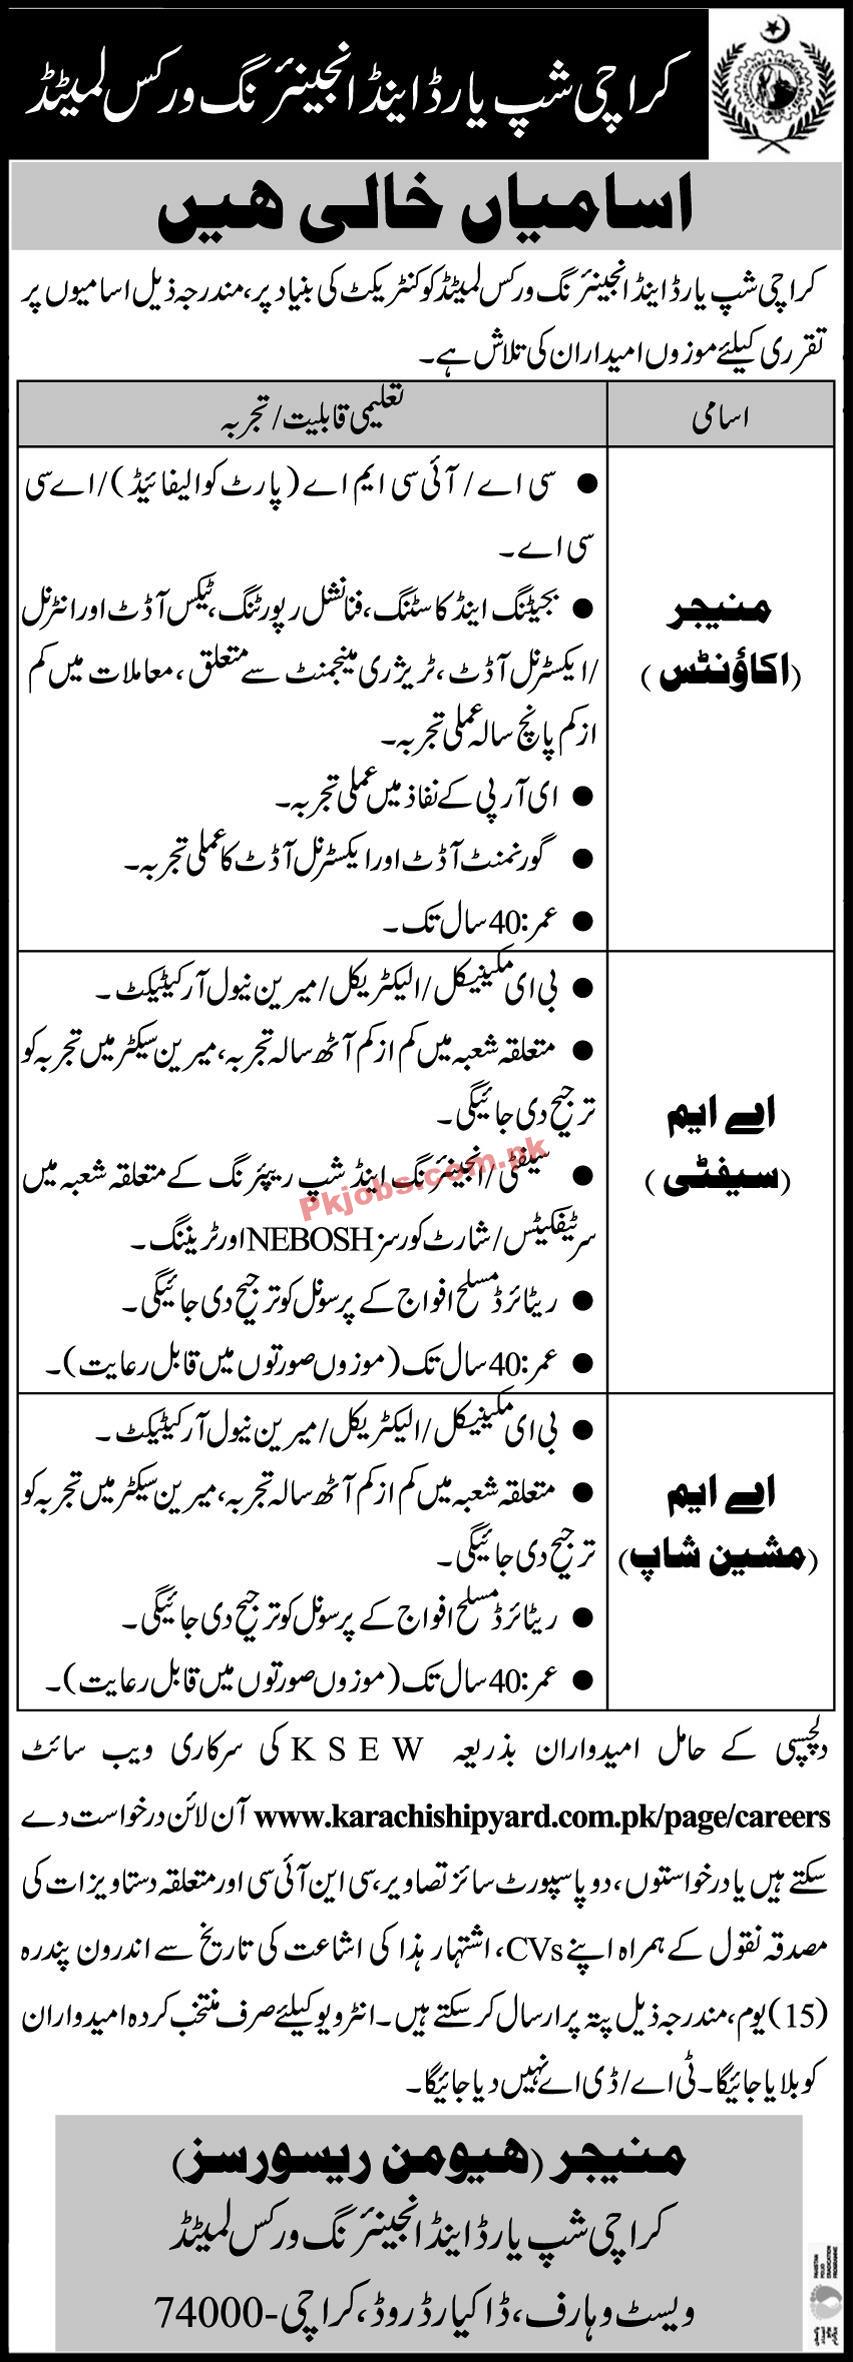 کراچی شپ یارڈ اینڈ انجینئرنگ ورکس لمیٹڈ
اسامیاں خالی ھیں
کراچی شپ یارڈ اینڈ انجینئرنگ ورکس لمیٹڈ کو کنٹریکٹ کی بنیاد پر، مندرجہ ذیل اسامیوں پر
تقرری کیلئے موزوں امیداران کی تلاش ہے۔
اسامی
تعلیمی قابلیت/تجربہ
منیجر
(اکاؤنٹس)
● سی اے/آئی سی ایم اے (پارٹ کوالیفائیڈ)/اے سی
سی اے۔
● بجیٹنگ اینڈ کاسٹنگ، فنانشل رپورٹنگ، ٹیکس آڈٹ اور انٹرنل
/ایکسٹرنل آڈٹ، ٹریژری مینجمنٹ سے متعلق، معاملات میں کم
ازکم پانچ سالہ عملی تجربہ۔
● ای آر پی کے نفاذ میں عملی تجربہ۔
● گورنمنٹ آڈٹ اور ایکسٹرنل آڈٹ کا عملی تجربہ۔
● عمر: 40 سال تک۔
اے ایم
(سیفٹی)
● بی ای مکینیکل/الیکٹریکل/میرین نیول آرکیٹیکٹ۔
● متعلقہ شعبہ میں کم ازکم آٹھ سالہ تجربہ، میرین سیکٹر میں تجربہ کو
ترجیح دی جائیگی۔
● سیفٹی/انجینئرنگ اینڈ شپ ریپئرنگ کے متعلقہ شعبہ میں
سرٹیفکیٹس/شارٹ کورسز NEBOSH اور ٹریننگ۔
● ریٹائرڈ مسلح افواج کے پرسونل کو ترجیح دی جائیگی۔
● عمر: 40 سال تک (موزوں صورتوں میں قابل رعایت)۔
اے ایم
(مشین شاپ)
● بی ای مکینیکل/الیکٹریکل/میرین نیول آرکیٹیکٹ۔
● متعلقہ شعبہ میں کم ازکم آٹھ سالہ تجربہ، میرین سیکٹر میں تجربہ کو
ترجیح دی جائیگی۔
● ریٹائرڈ مسلح افواج کے پرسونل کو ترجیح دی جائیگی۔
● عمر: 40 سال تک (موزوں صورتوں میں قابل رعایت)۔
Pkjobs.com.pk
دلچسپی کے حامل امیدواران بذریعہ KSEW کی سرکاری ویب سائٹ
www.karachishipyard.com.pk/page/careers آن لائن درخواست دے
سکتے ہیں یا درخواستوں، دو پاسپورٹ سائز تصاویر، سی این آئی سی اور متعلقہ دستاویزات کی
مصدقہ نقول کے ہمراہ اپنے CVs، اشتہار ہذا کی اشاعت کی تاریخ سے اندرون پندرہ
(15) یوم، مندرجہ ذیل پتہ پر ارسال کرسکتے ہیں۔ انٹرویو کیلئے صرف منتخب کردہ امیدواران
کو بلایا جائیگا۔ ٹی اے/ڈی اے نہیں دیا جائیگا۔
منیجر (ھیومن ریسورسز)
کراچی شپ یارڈ اینڈ انجینئرنگ ورکس لمیٹڈ
ویسٹ وہارف، ڈاکیارڈ روڈ، کراچی-74000
PAKISTAN
POLIO
ERADICATION
PROGRAMME